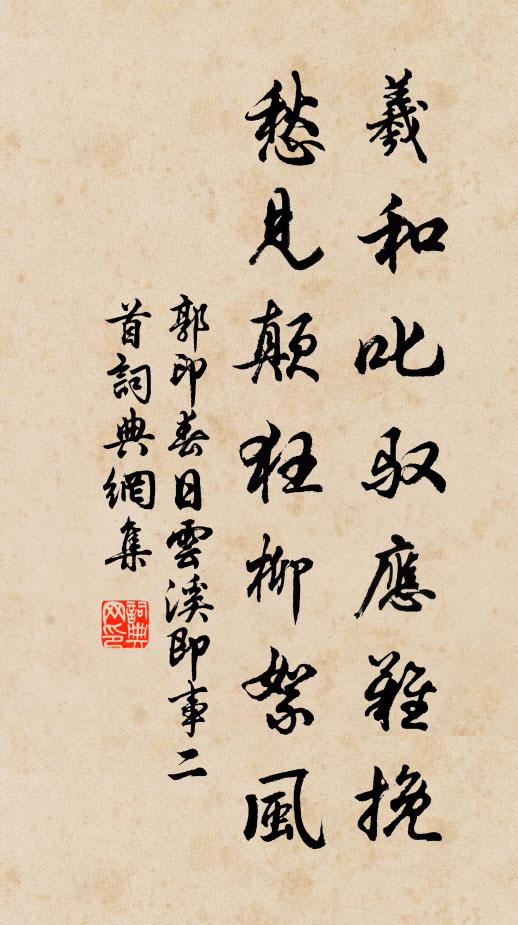 羲和叱馭應難挽
愁見顛狂柳絮風
郭印春日雲溪即事二
首詞典網集
詞典網印